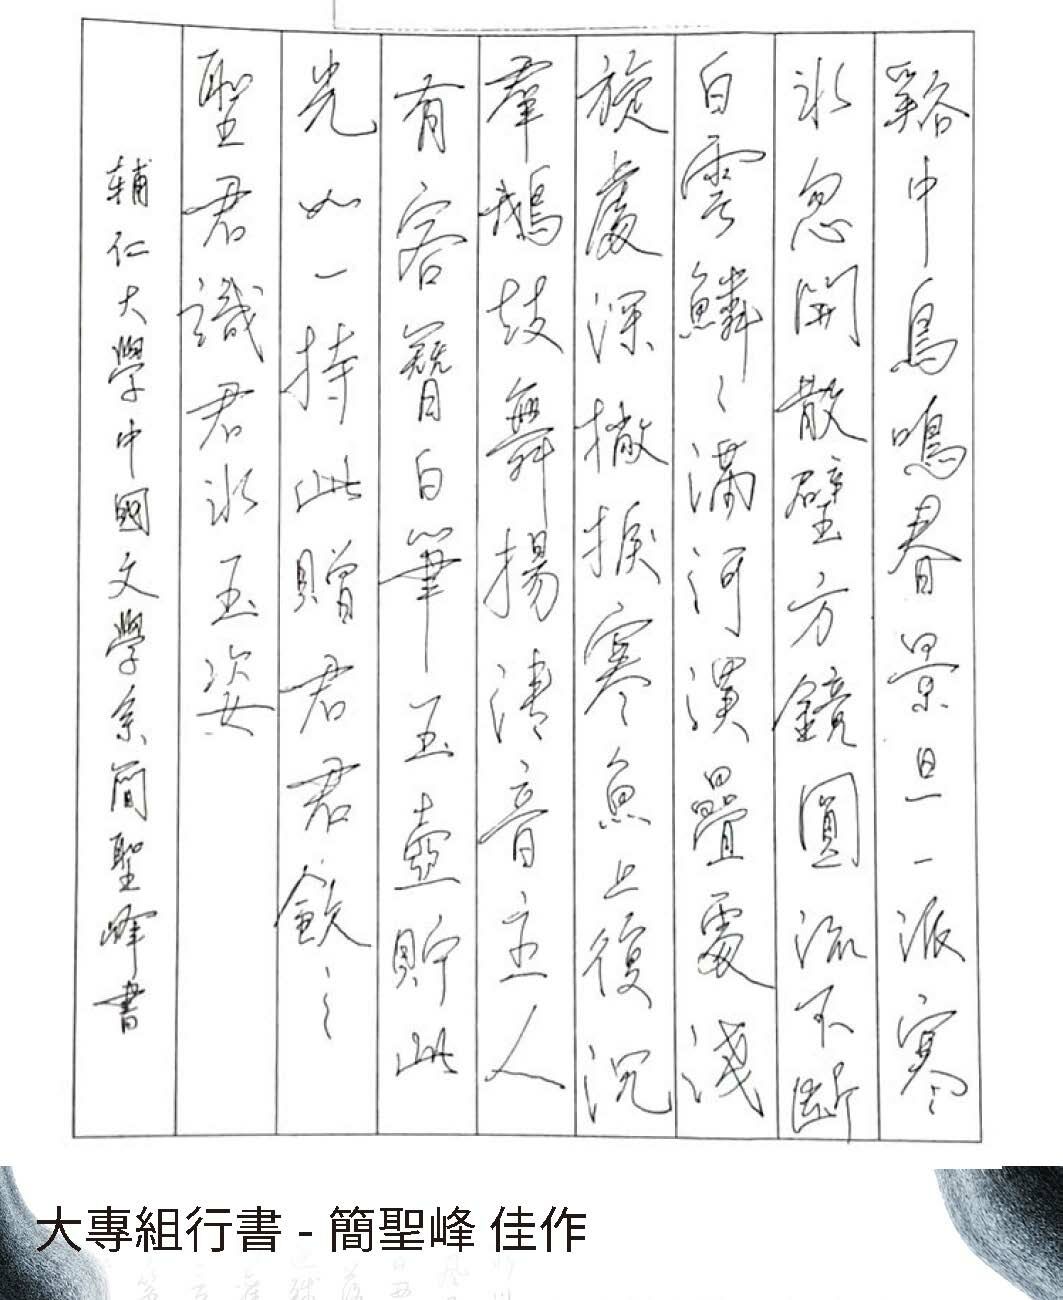 谿中鳥鳴春景旦一派寒
冰忽開散璧方鏡圓流不斷
白雲鱗〻滿河漢疊處淺
旋處深撇捩寒魚上復沉
羣鵝鼓舞揚清音主人
有客簪白筆玉壺貯此
光如一持此贈君君飲〻
聖君識君冰玉姿
輔仁大學中國文學系簡聖峰書
大專組行書 - 簡聖峰 佳作